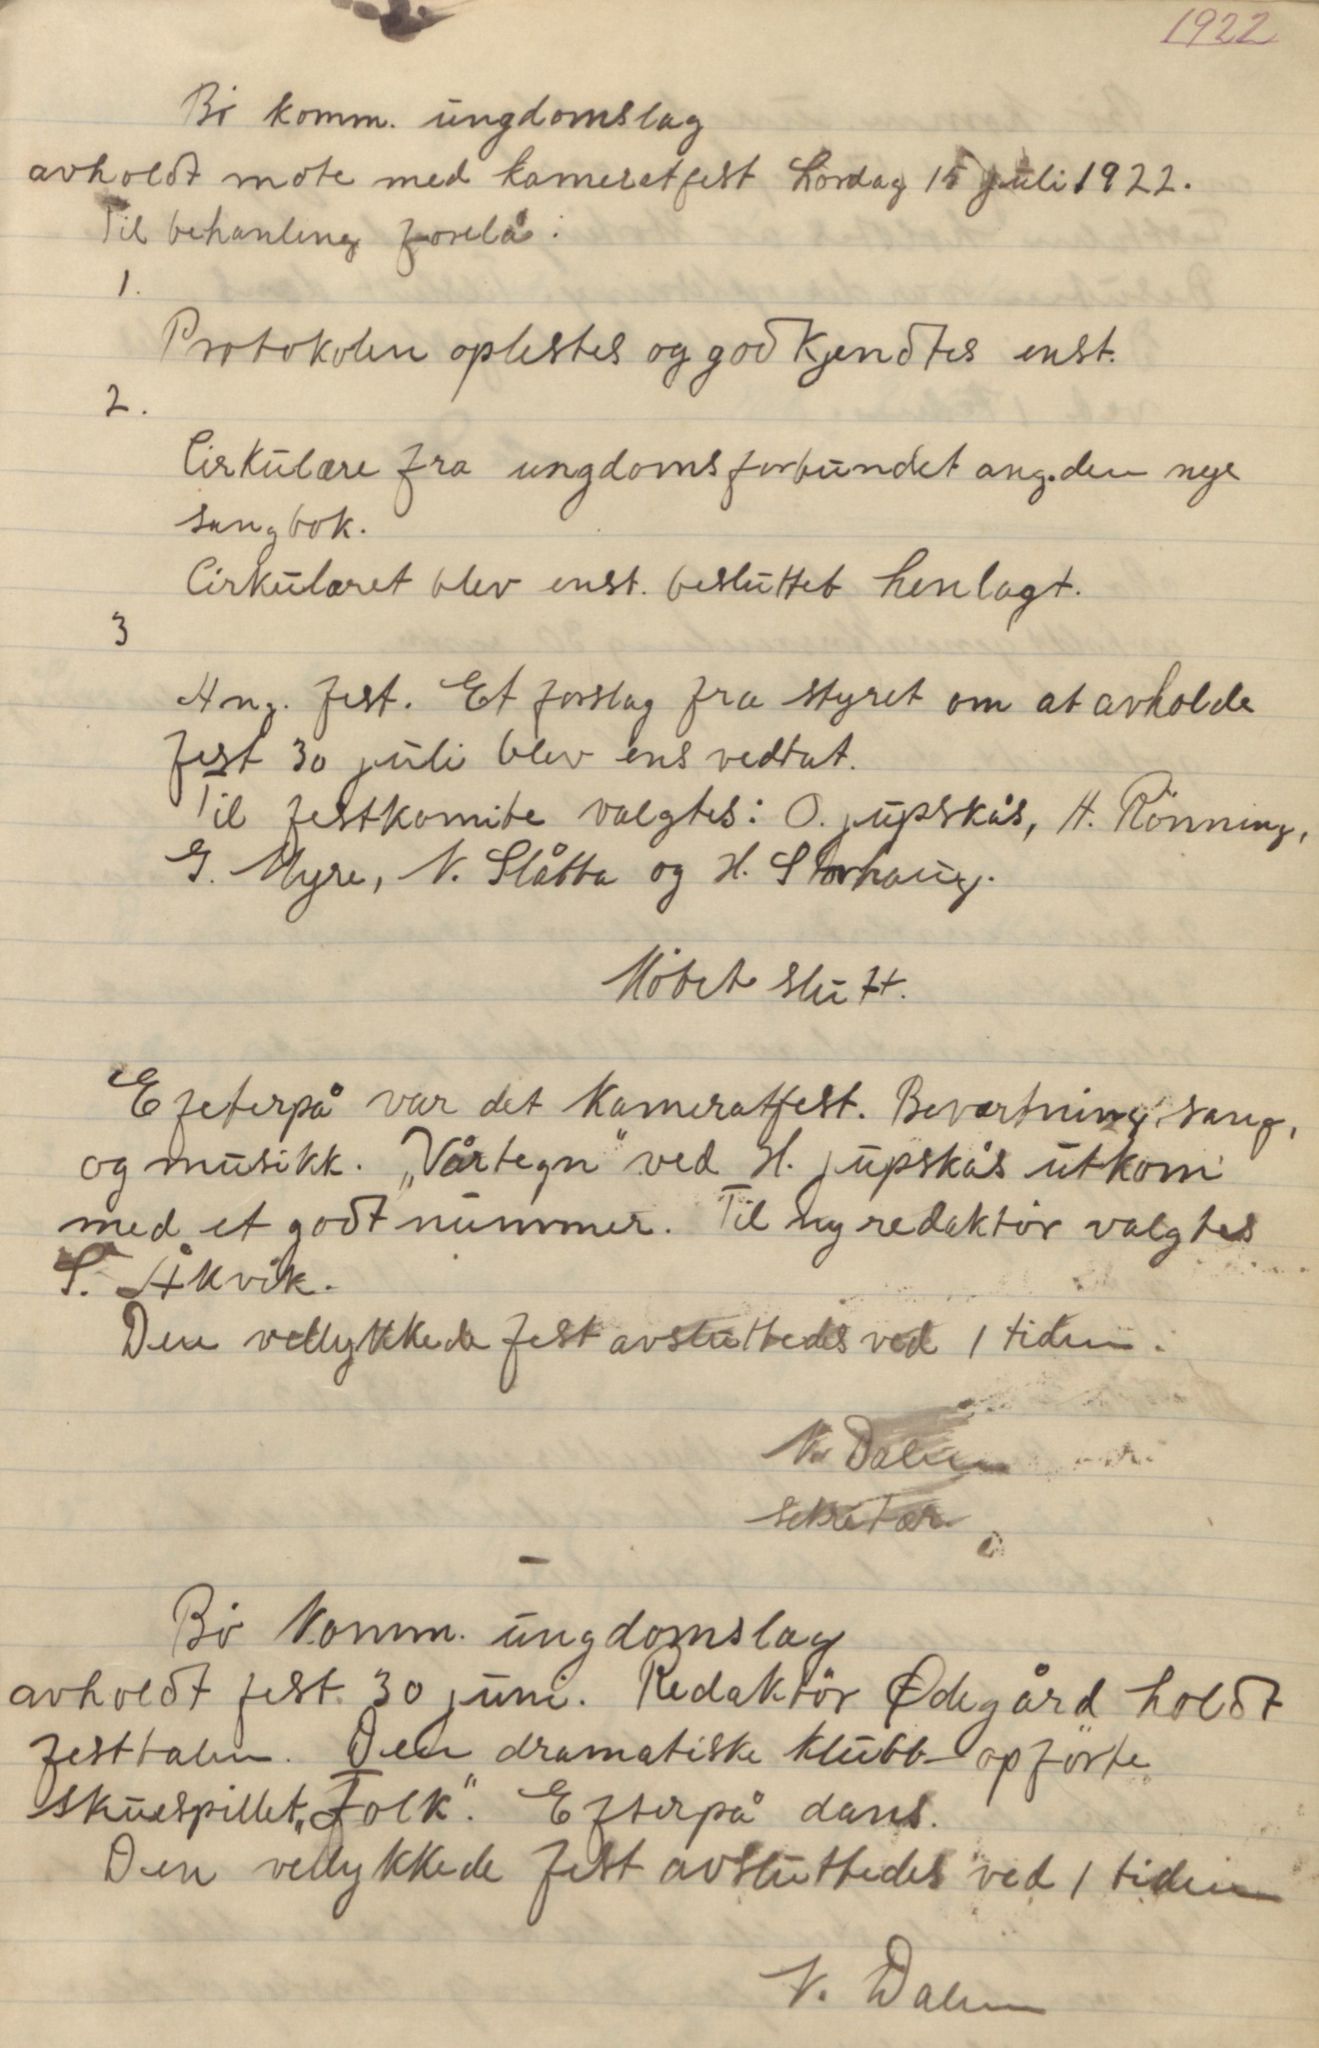 1922
Bö komm. ungdomslag
avholdt möte med kameratfest Lördag 15 juli 1922.
Til behanling forelå:
1.
Protokolen oplestes og godkjendtes enst.
2.
Cirkulære fra ungdomsforbundet ang. den nye
sangbok.
Cirkulæret blev enst. besluttet henlagt.
3
Ang. fest. Et forslag fra styret om at avholde
fest 30 juli blev ens vedtat.
Til festkomite valgtes: O. jupskås, H. Rönning,
G. Myre, N. Slåtta og H. Storhaug.
Mötet slutt.
Efterpå var det Kameratfest. Beværtning, sang,
og musikk. „Vårtegn" ved H. jupskås utkom
med et godt nummer. Til ny redaktör valgtes
S. Åkvik.
Den vellykkede fest avsluttedes ved 1 tiden.
N. Dalen
sekretær
Bö Komm. ungdomslag
avholdt fest 30 juni. Redaktör Ødegård holdt
festtalen. Den dramatiske klubb opförte
skuespillet „Folk". Efterpå dans.
Den vellykkede fest avsluttedes ved 1 tiden
N. Dalen